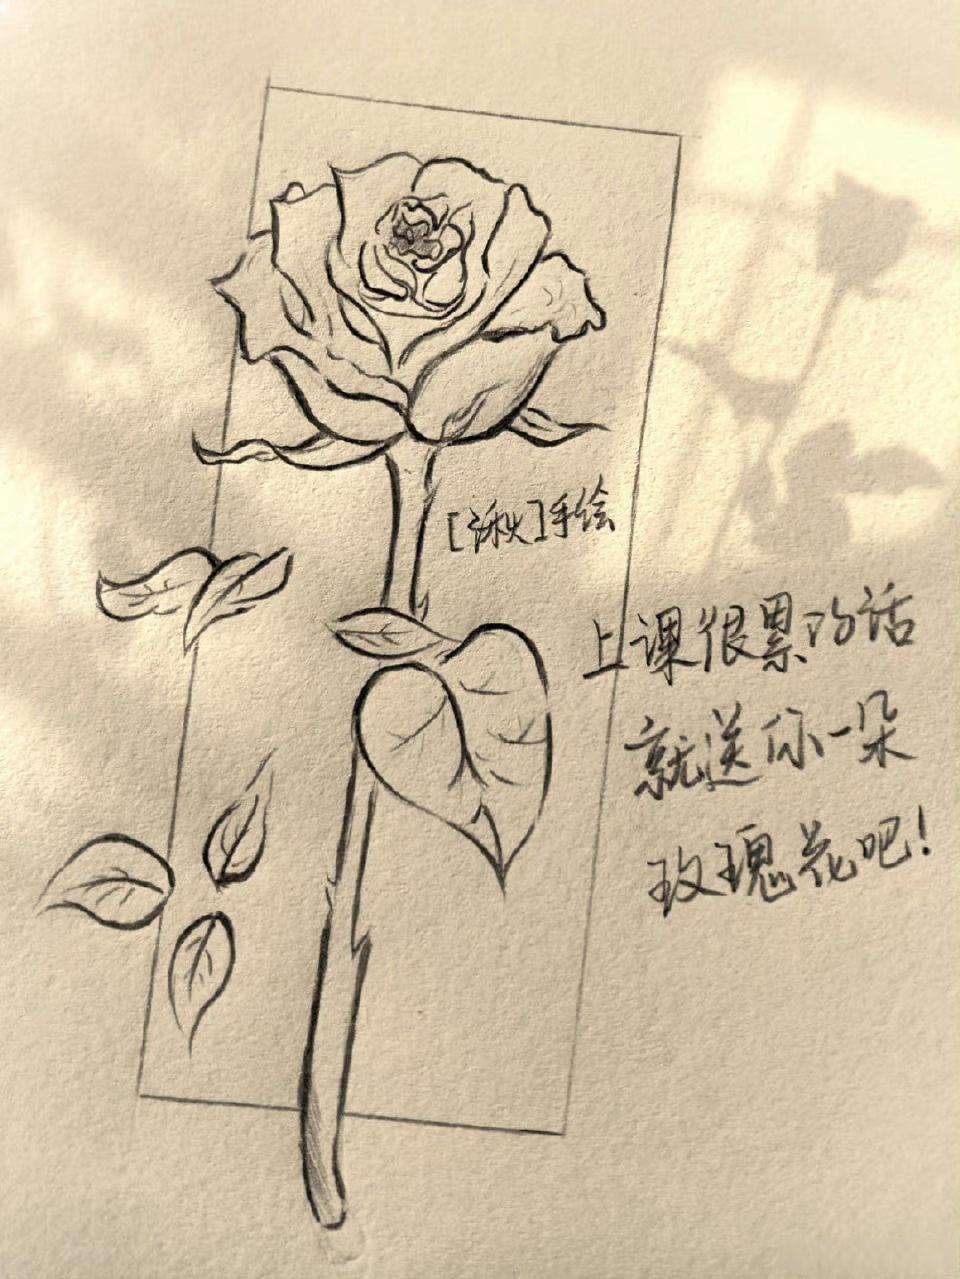 [湫]手绘
上课很累的话
就送你一朵
玫瑰花吧!